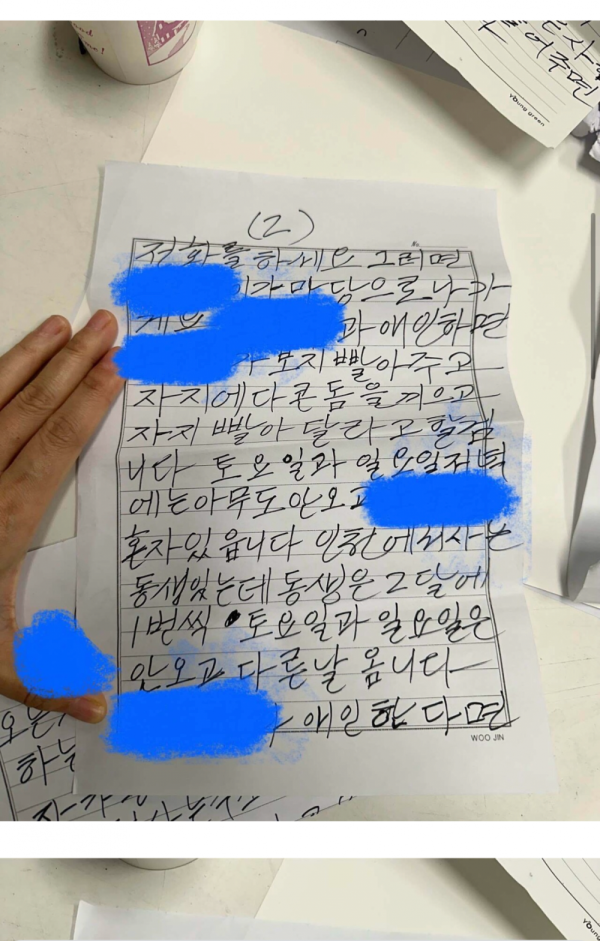 young green
(2)
전화를 하세요 그러면
마당으로 나가
과 애인하면
보지 빨아주고
자지에다 콘돔을 끼우고
자지 빨아 달라고 할겁
니다 토요일과 일요일저녁
에는 아무도 안오고
혼자있읍니다 인천에 사는
동생있는데 동생은 2달에
1번씩 토요일과 일요일은
안오고 다른날 옵니다
애인한다면
WOO JIN